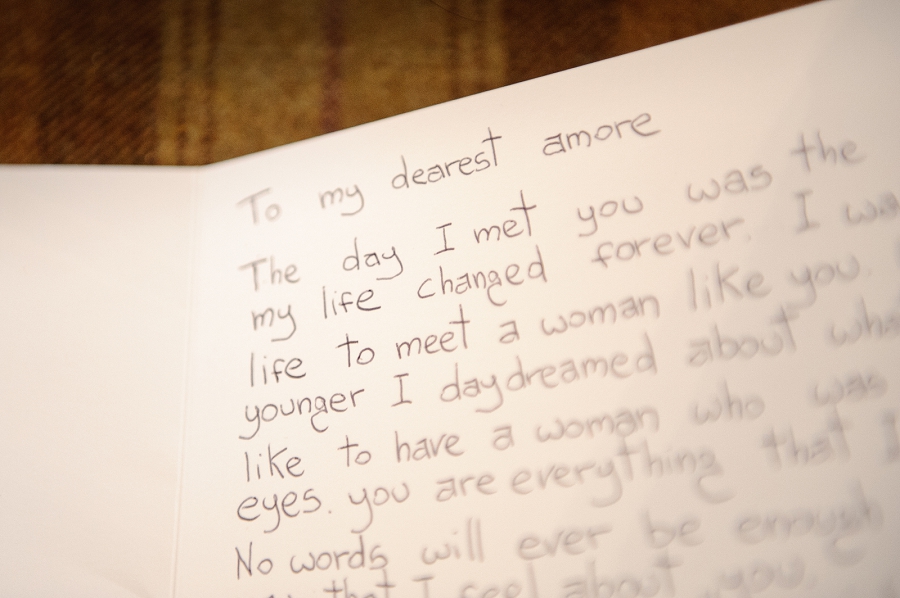 To my dearest amore
The day I met you was the
my life changed forever. I
life to meet a woman like you.
younger I daydreamed about
like to have a woman who was
eyes. you are everything that I
No words will ever be enough
that I feel about you.